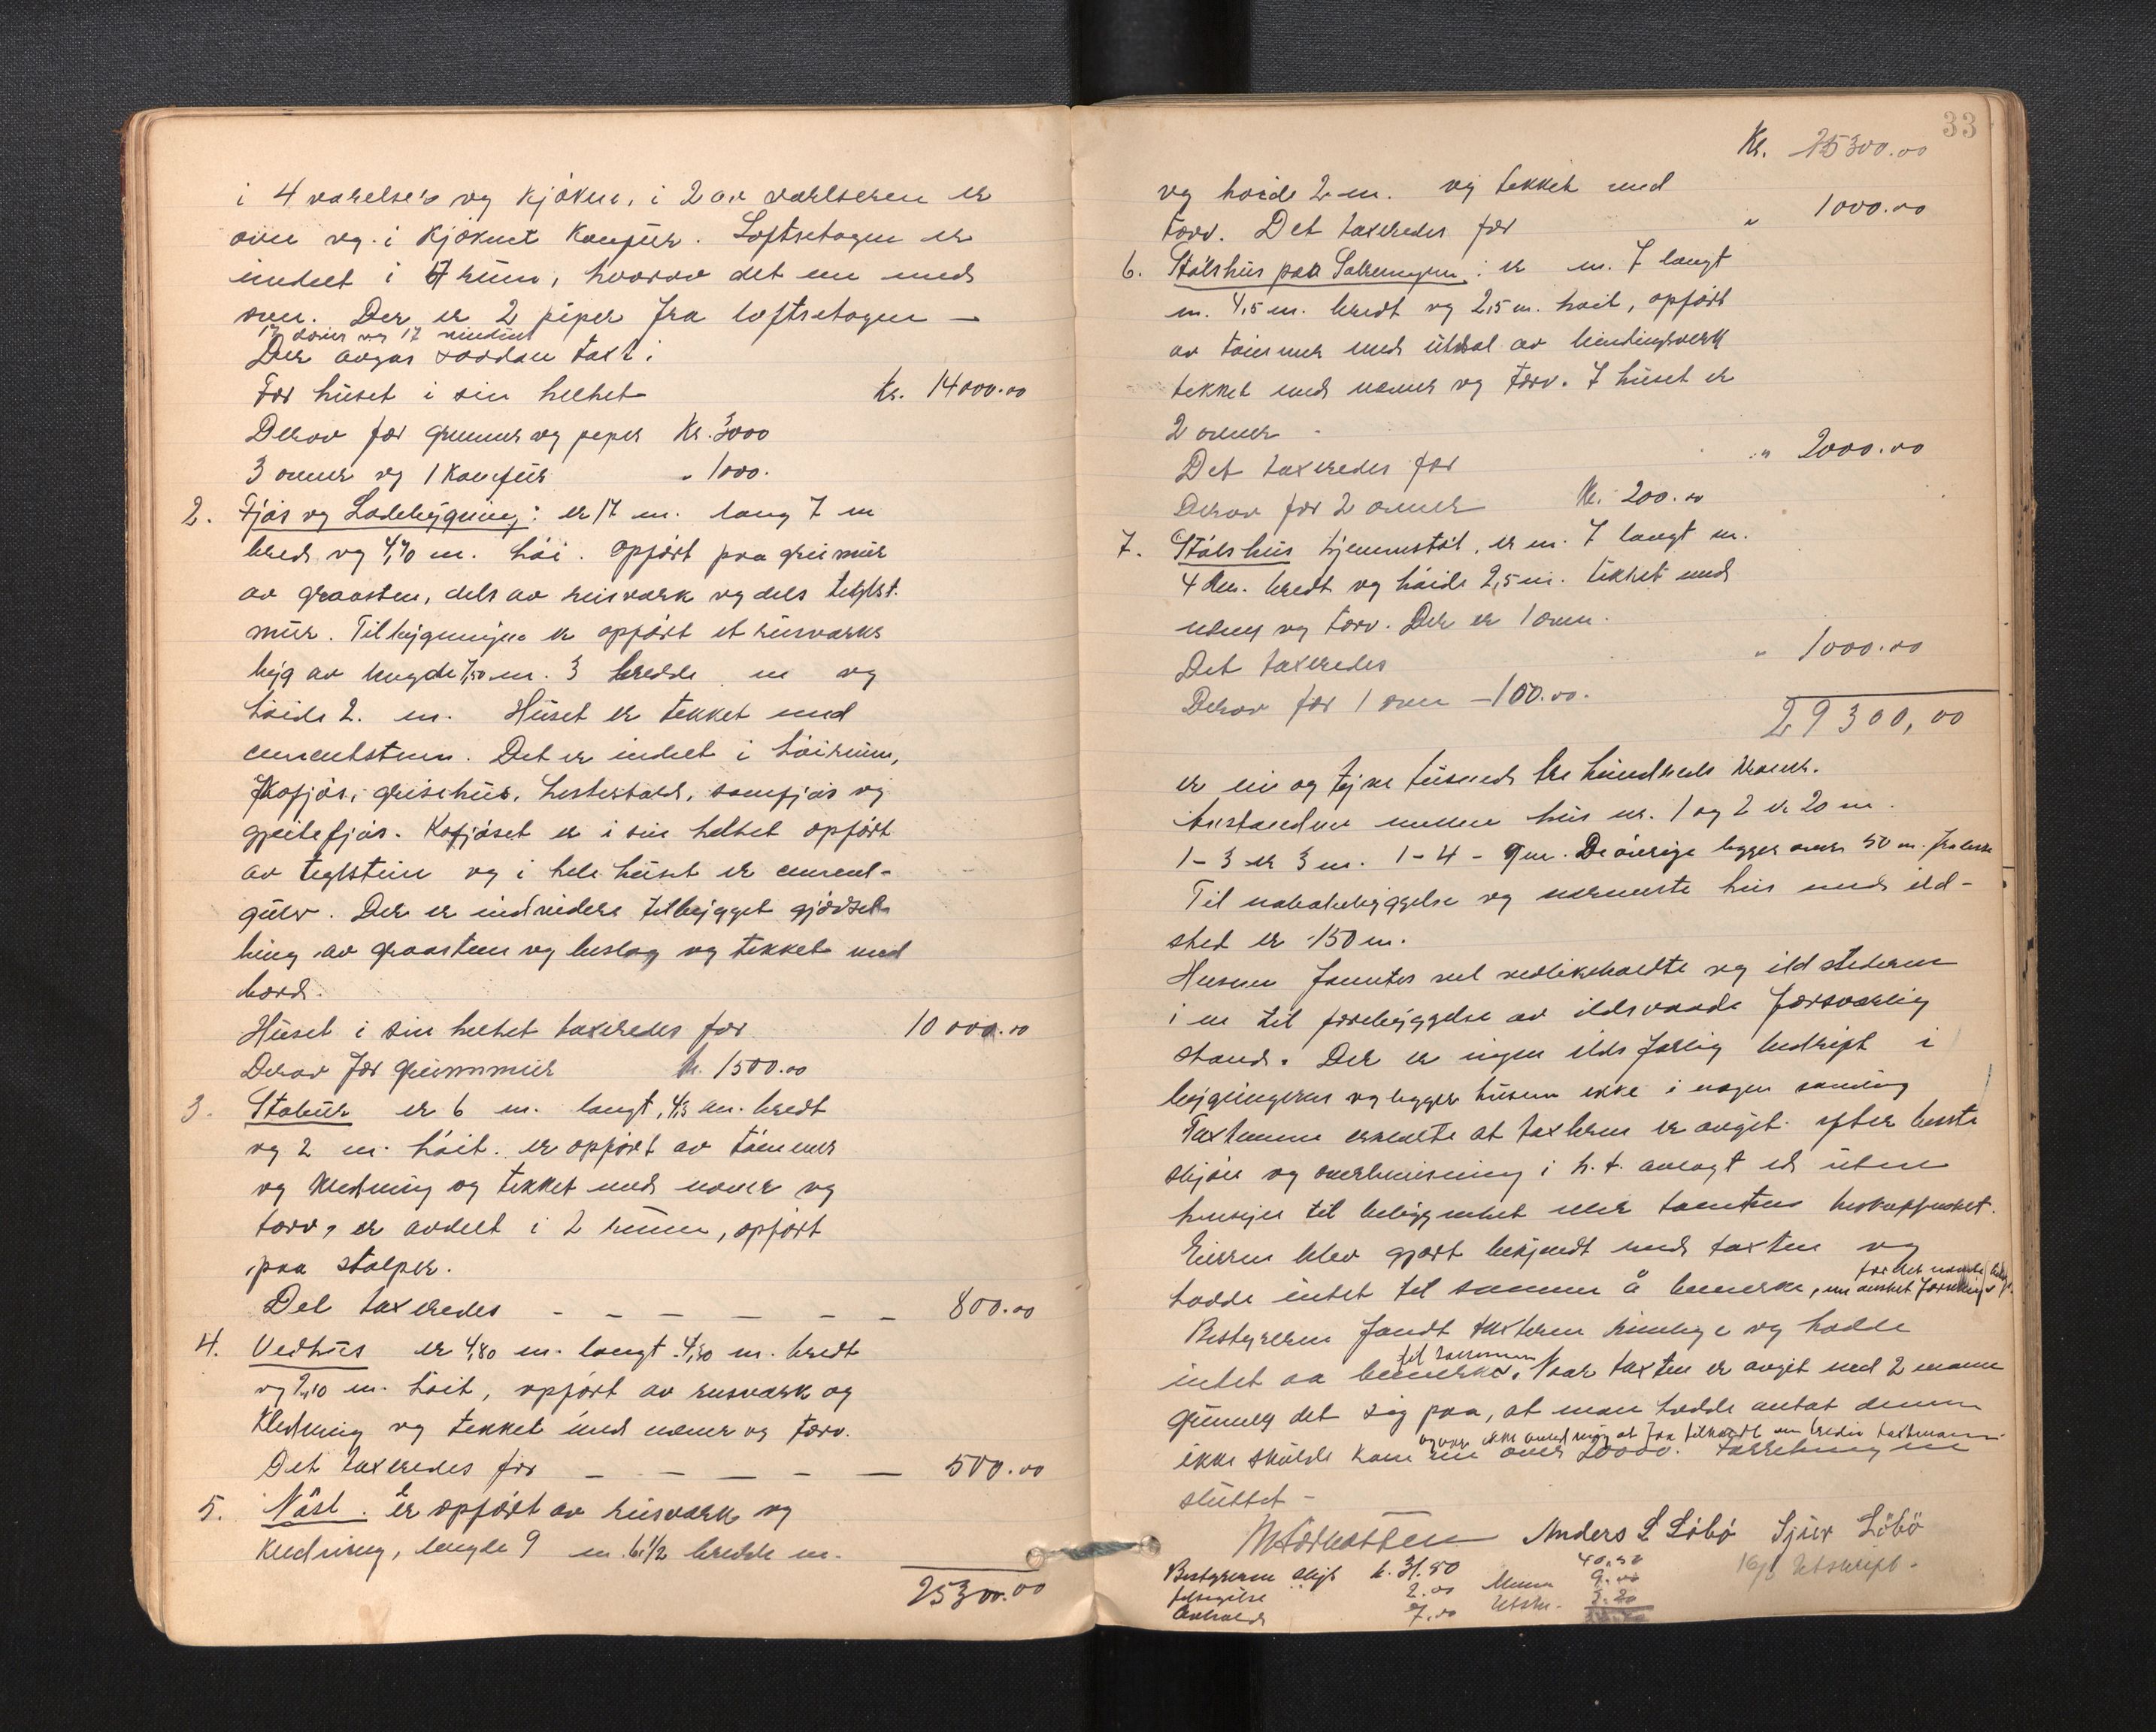 i 4 værelse's og kjøken, i 2 av værlseren er
oven og i kjøknet komfür. Loftsetagen er
inndelt i 4 rüm, hvorav det ene med
oven. Der er 2 piper fra loftsetagen —
17 dører og 17 vindüer
Der avgas saadan taxt:
For hüset i sin helhet kr. 14000.00
Derav for grunmur og peper Kr. 3000
3 ovner og 1 Komfür " 1000.
2. Fjøs og Ladebygning: er 17 m. lang 7 m
bred og 4,70 m. høi. Opført paa grünmür
av graasten, dels av reisværk og dels teglst.
mür. Til bygningen er opført et reisværks
byg av lengde 7,50 m. 3 bredde m og
høide 2. m. Hüset er tekket med
cementsten. Det er indelt i høirüm,
Kofjøs, grisehüs, hestestald, sauefjøs og
gjeitefjøs. Kofjøset er i sin helhet opført
av teglstein og i hele hüset er cement-
gülv. Der er endvidere tilbygget gjødsel-
bing av graasten og beslag og tekket med
bord.
Hüset i sin helhet taxeredes for 10 000.00
Derav for grünnmür kr. 1500.00
3. Stabür er 6 m. langt, 4,3 m. bredt
og 2 m. høit. er opført av tømmer
og kledning og tekket med never og
torv, er avdelt i 2 rümm, opført
paa stolper.
Det taxeredes — — — — — — 800.00
4. Vedhüs er 4,80 m. langt 4,30 m. bredt
og 2,10 m. høit, opført av reisværk og
kledning og tekket med never og torv.
Det taxeredes for — — — — — 500.00
5. Nöst. Er opført av reisværk og
kledning, lengde 9 m. 6 1/2 bredde m.
25300.00
33
Kr. 25300.00
og høide 2 m. og tekket med
torv. Det taxeredes for " 1000.00
6. Stølshüs paa : er m. 7 langt
m. 4,5 m. bredt og 2,5 m. høit, opført
av tømmer med ütskot av bindingsverk
tekket med never og torv. I hüset er
2 ovner -
Det taxeredes for " 2000.00
Derav for 2 ovner Kr. 200.00
7. Stølshüs hjemmstøl, er m. 7 langt m.
4 m. bredt og høide 2,5 m. tekket med
never og torv. Der er 1 oven.
Det taxeredes " 1000.00
Derav for 1 oven — 100.00.
29300,00
er ni og tjve tüsend tre hündrede kroner.
Avstanden mellem hüs nr. 1 og 2 er 20 m.
1 - 3 er 3 m. 1 - 4 - 9 m. De øvrige ligger over 50 m. fra disse
Til nabobebyggelse og nermeste hüs med ild-
sted er 150 m.
Husene fantes vel vedlikeholdte og ildstederne
i en til forebyggelse av ildsvaade forsvarlig
stand. Der er ingen ildsfarlig bedript i
bygningerne og ligger hüsene ikke i nogen samling
Taxtmenn erklærte at taxterne er avgit efter beste
skjøn og overbevisning i h. t. avlagt ed üten
hensyn til beliggenhet eller tomtens beskaffenhet.
Eieren blev gjort bekjendt med taxten og
hadde intet til samme å bemerke, men ønsket forsikring for det
Bestyreren fandt taxterne rimlige og hadde
intet aa bemerke til samme. Naar taxten er avgit med 2 menn
grünner det sig paa, at man hadde antat denne
ikke skülde komme over 20000. og var ikke anledning at faa tilkaldt en tredie taxtmann. Forretningen
slüttet -
Anders L Löbö Sjür Löbö
Bestyreren skjk. k. 31.50 40,50 16/8 Utskript.
følgeseddel 2.00 Menn 9.00
Avhold 7.00 Utskr. 3.20